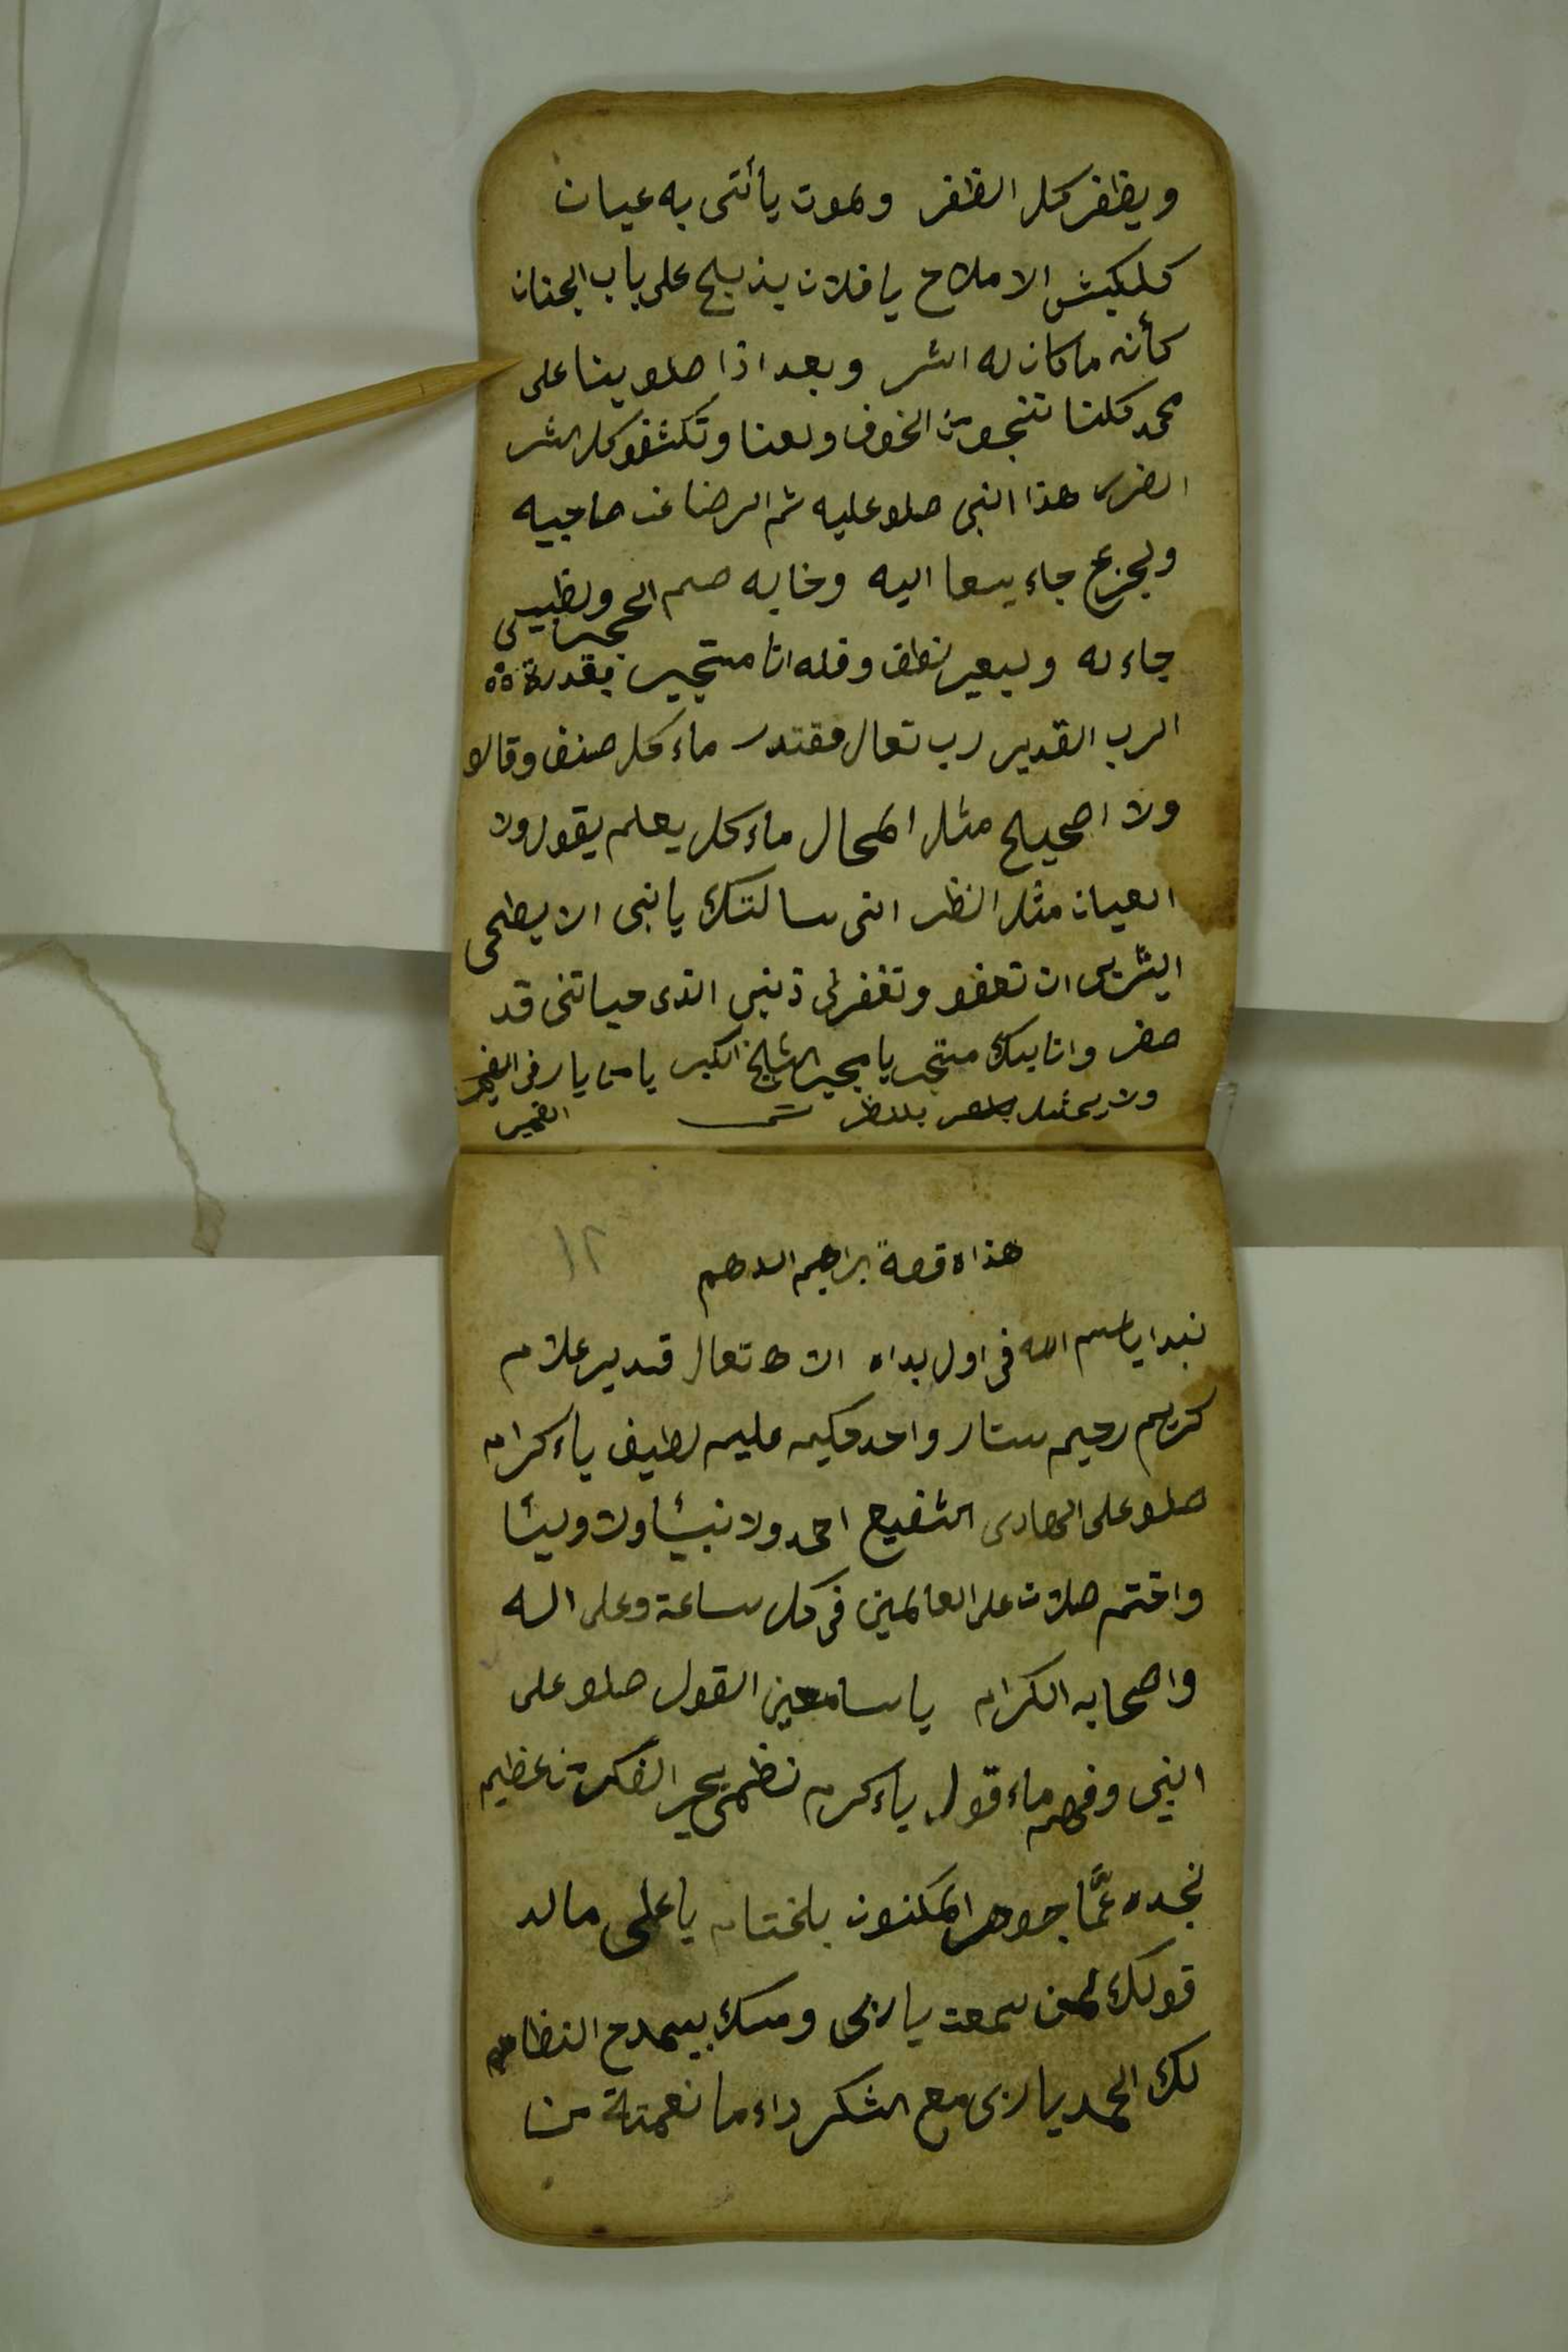 ويظفر كل الظفر ولموت يأتى به عيان
كلكبش الاملاح يافلان يذبلح على باب الجنان
كأنه ماكان له اثر وبعد اذا صلو ينا على
محمد كلنا ننجو من الخوف ولعنا وتكشفو كل الشر
الضرر هذا النبى صلو عليه ثم الرضا عن صاحبيه
ولجزع جاء يسعا اليه وخابه صم الحجر ولظبيى
جاء له ولبعير نطق وقله انا مستجير بقدرة
الرب القدير رب تعال مقتدر ماء كل صنف وقالو
ولا اصحيلح مثل المحال ماء كل يعلم يقول ولا
العيان مثل النظر انى سالتك يا نبى الابطحى
ان تعفو وتغفر لى ذنبى الذى حياتنى قد
صفر وانا بك مستجر يا مجير الكبر يا من يا
ولا بلنظر
هذاه قصة براهيم الدهم
١٢
نبدا ياسم الله فى اول بداه الاه تعال قدير علام
كريم رحيم ستار واحد حكيم عليم لطيف ياء كرام
صلو على الهادى الشفيع احمد ولا نبيئا ولا وليئا
واختم صلات على العالمين فى كل ساعة وعلى اله
واصحابه الكرام يا سامعين القول صلو على
النبى وفهم ماء قول ياء كرم نظمى بحر الفكر من عظيم
نجده عمَّا جوهر المكنون بلختام يا على مالد
قولك لمن سمعت يا ربى ومسك بيمدح النظام
لك الحمد يا ربى مع الشكر داء ما نعمتة من